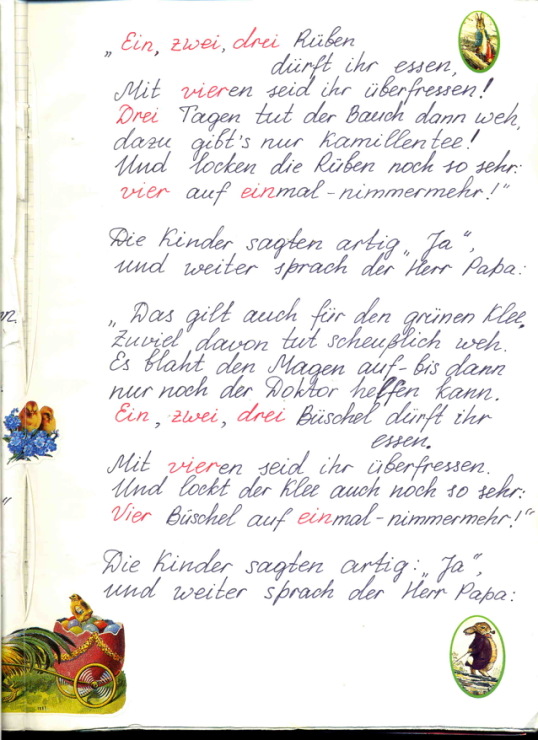 „Ein, zwei, drei Rüben
dürft ihr essen,
Mit vieren seid ihr überfressen!
Drei Tagen tut der Bauch dann weh,
dazu gibt's nur Kamillentee!
Und locken die Rüben noch so sehr:
vier auf einmal - nimmermehr!"
Die Kinder sagten artig „Ja",
und weiter sprach der Herr Papa:
„Das gilt auch für den grünen Klee,
Zuviel davon tut scheußlich weh.
Es bläht den Magen auf - bis dann
nur noch der Doktor helfen kann.
Ein, zwei, drei Büschel dürft ihr
essen.
Mit vieren seid ihr überfressen.
Und lockt der Klee auch noch so sehr:
Vier Büschel auf einmal - nimmermehr!"
Die Kinder sagten artig: „Ja",
und weiter sprach der Herr Papa: